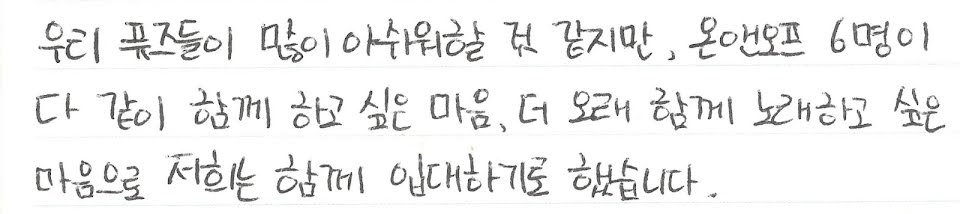 우리 퓨즈들이 많이 아쉬워할 것 같지만, 온앤오프 6명이
다 같이 함께 하고 싶은 마음, 더 오래 함께 노래하고 싶은
마음으로 저희는 함께 입대하기로 했습니다.